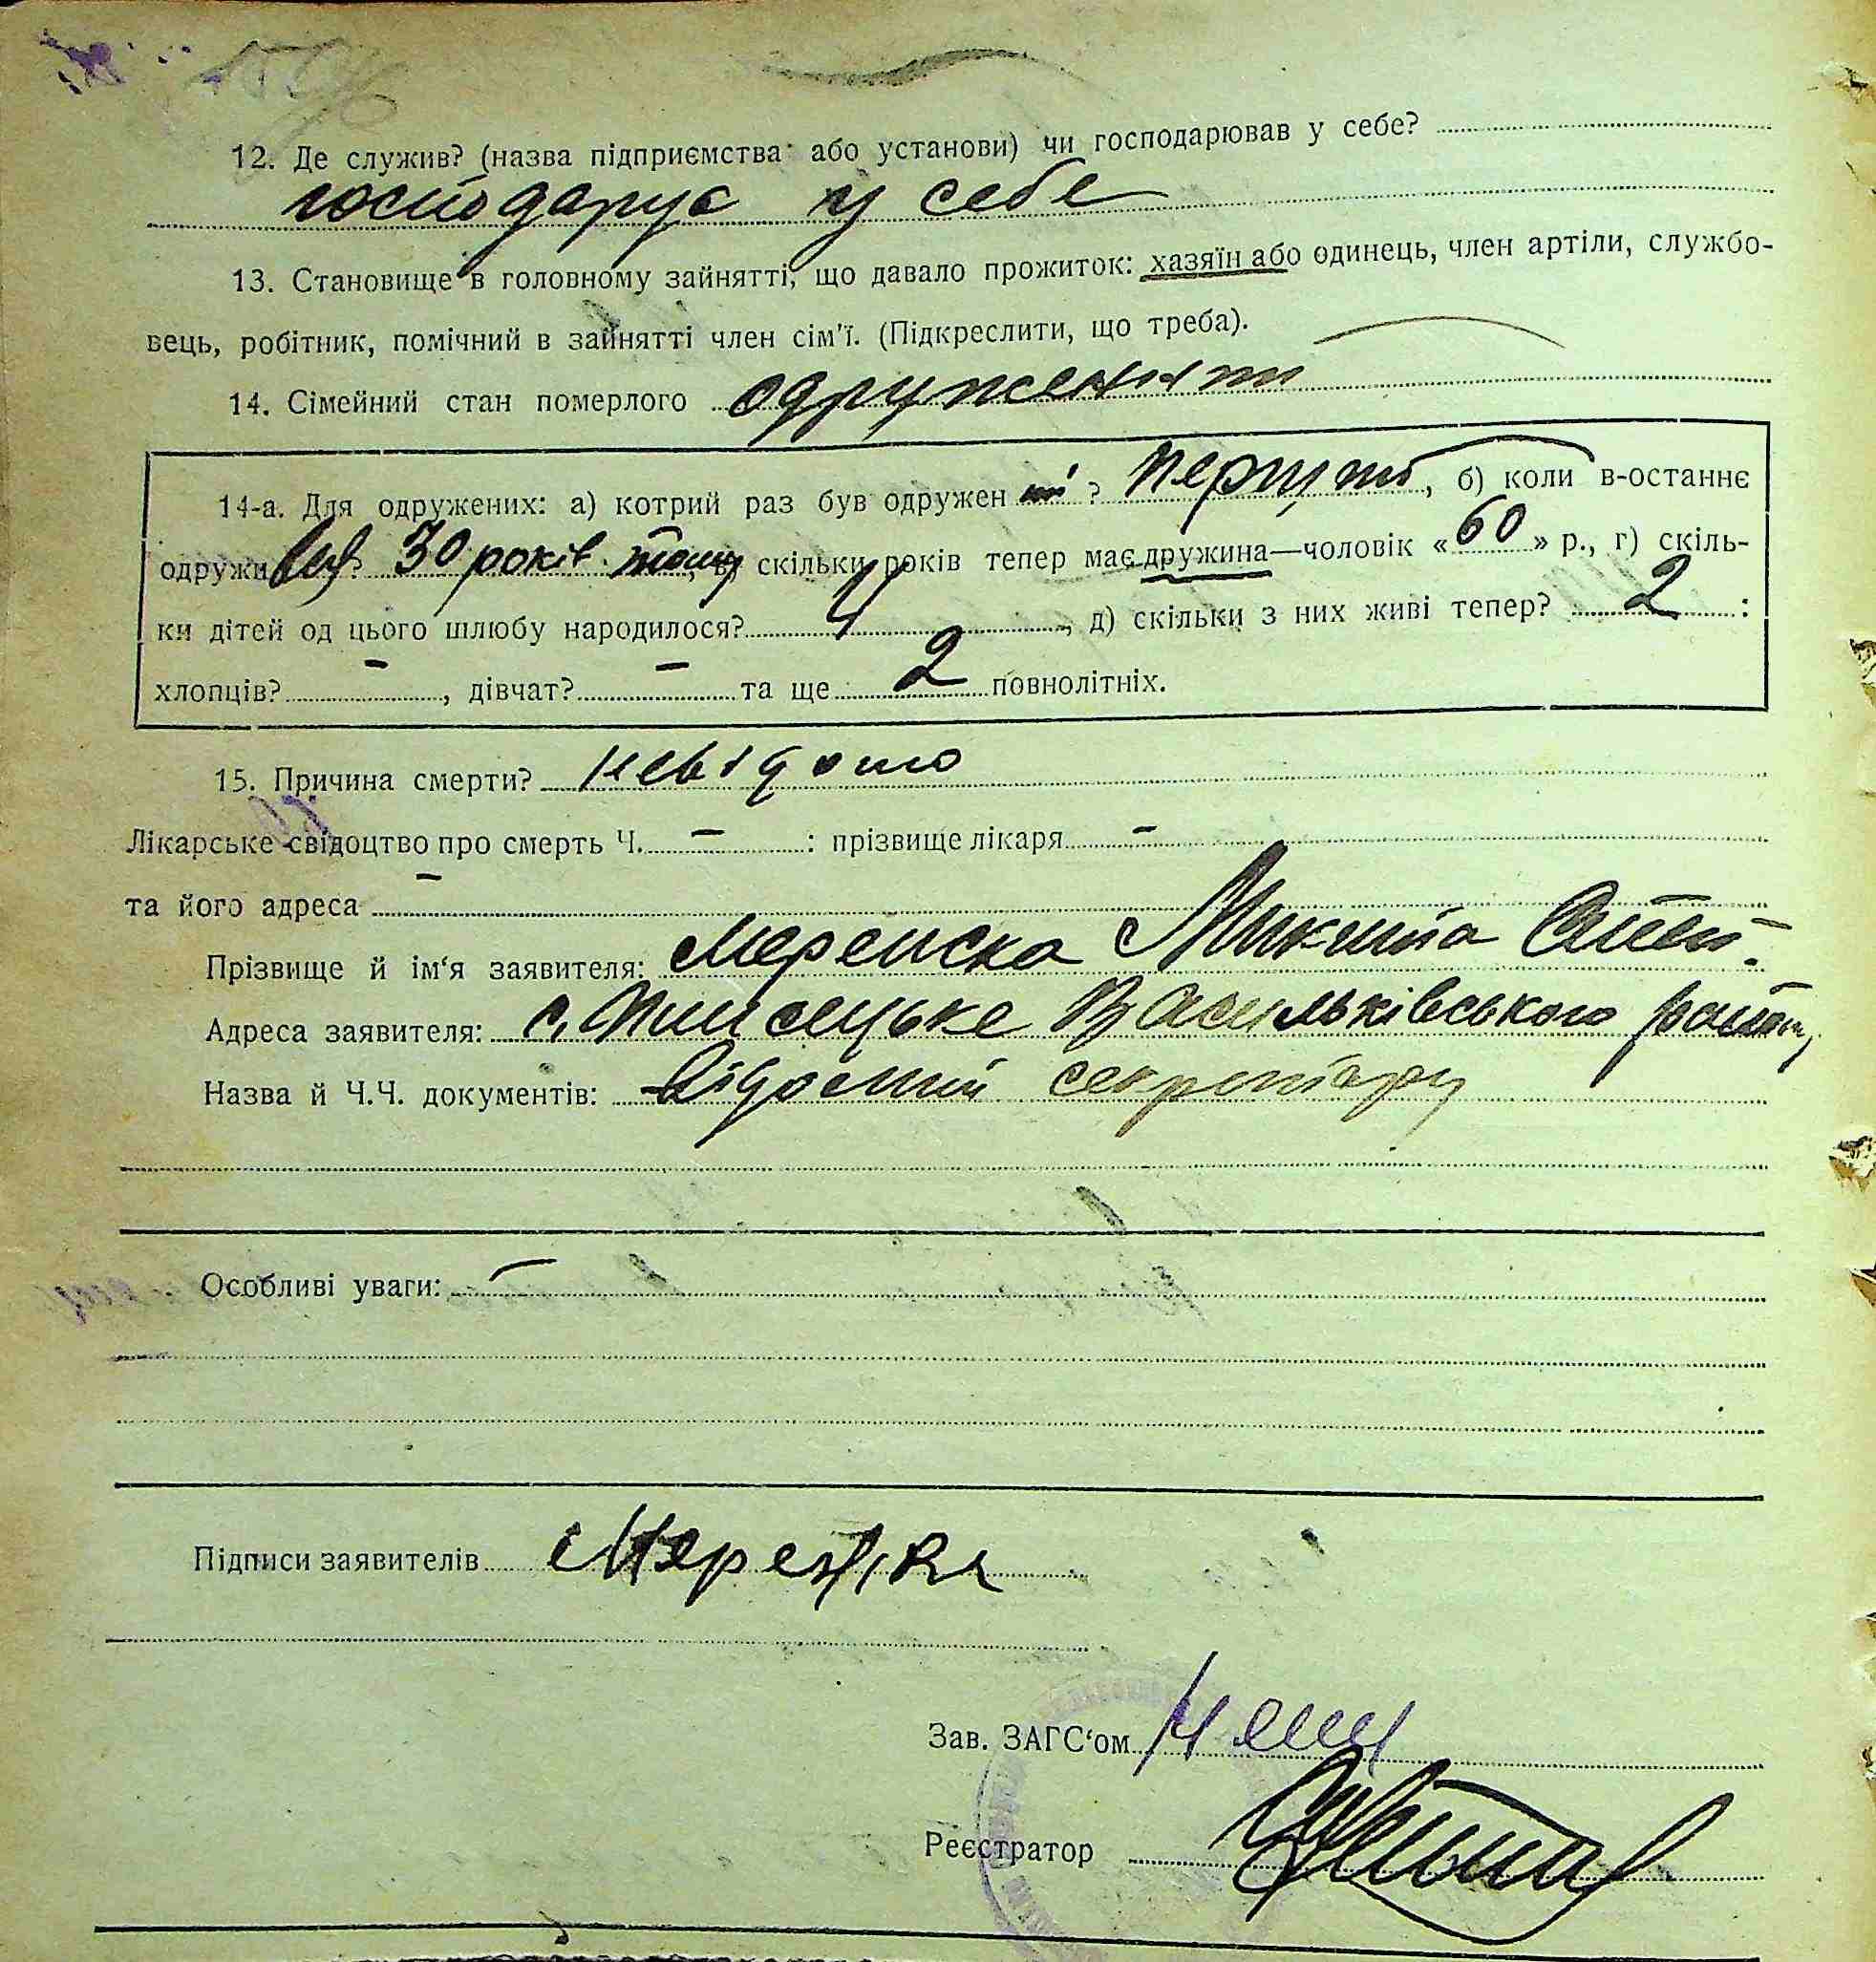 12. Де служив? (назва підприємства або установи) чи господарював у себе?
господарує у себе
13. Становище в головному зайнятті, що давало прожиток: хазяїн або одинець, член артіли, службо-
вець, робітник, помічний в зайнятті член сім'ї. (Підкреслити, що треба).
14. Сімейний стан померлого одружений
14-а. Для одружених: а) котрий раз був одружен ий ? перший, б) коли в-останнє
одружився? 30 років тому, в) скільки років тепер має дружина—чоловік «60» р., г) скіль-
ки дітей од цього шлюбу народилося? 4, д) скільки з них живі тепер? 2 :
хлопців? –, дівчат? – та ще 2 повнолітніх.
15. Причина смерти? невідомо
Лікарське свідоцтво про смерть Ч. – : прізвище лікаря –
та його адреса –
Прізвище й ім'я заявителя: Микита
Адреса заявителя: с. Плисецьке Васильківського району
Назва й Ч.Ч. документів: Відомий секретарю
Особливі уваги: –
Підписи заявителів
Зав. ЗАГС'ом
Реєстратор